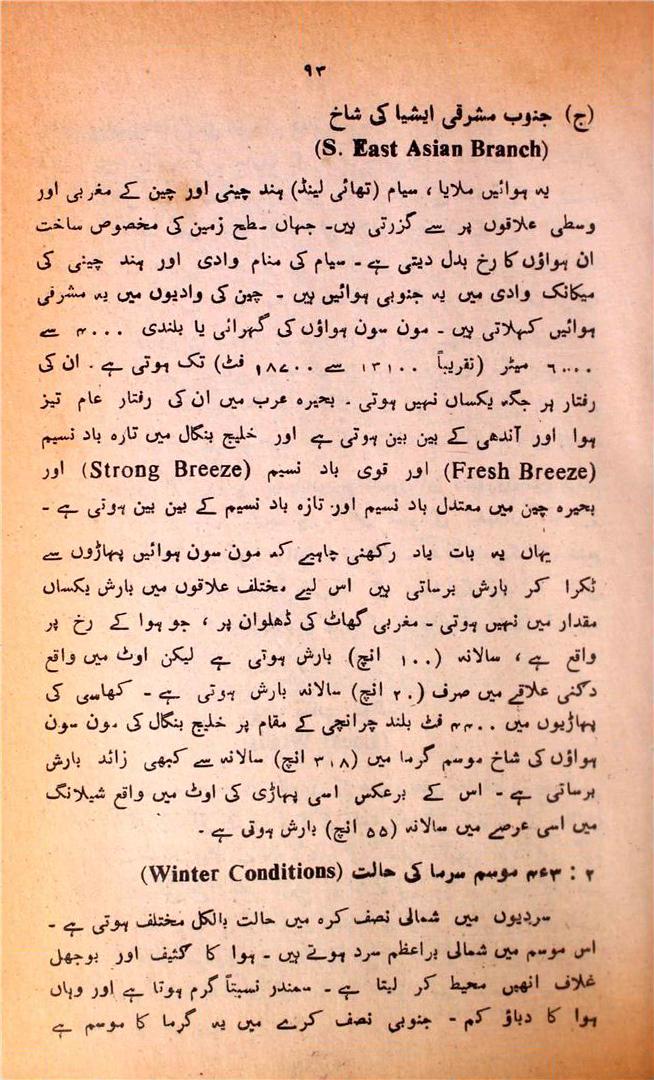 ۹۳
(ج) جنوب مشرقی ایشیا کی شاخ
(S. East Asian Branch)
یہ ہوائیں ملایا ، سیام (تھائی لینڈ) ہند چینی اور چین کے مغربی اور
وسطی علاقوں پر سے گزرتی ہیں۔ جہاں سطح زمین کی مخصوص ساخت
ان ہواؤں کا رخ بدل دیتی ہے ۔ سیام کی منام وادی اور ہند چینی کی
میکانک وادی میں یہ جنوبی ہوائیں ہیں ۔ چین کی وادیوں میں یہ مشرقی
ہوائیں کہلاتی ہیں ۔ مون سون ہواؤں کی گہرائی یا بلندی ۴۰۰۰ سے
۶۰۰۰ میٹر (تقریباً ۱۳۱۰۰ سے ۱۸۷۰۰ فٹ) تک ہوتی ہے ۔ ان کی
رفتار ہر جگہ یکساں نہیں ہوتی ۔ بحیرہ عرب میں ان کی رفتار عام تیز
ہوا اور آندھی کے بین بین ہوتی ہے اور خلیج بنگال میں تازہ باد نسیم
(Fresh Breeze) اور قوی باد نسیم (Strong Breeze) اور
بحیرہ چین میں معتدل باد نسیم اور تازہ باد نسیم کے بین بین ہوتی ہے ۔
یہاں یہ بات یاد رکھنی چاہیے کہ مون سون ہوائیں پہاڑوں سے
ٹکرا کر بارش برساتی ہیں اس لیے مختلف علاقوں میں بارش یکساں
مقدار میں نہیں ہوتی ۔ مغربی گھاٹ کی ڈھلوان پر ، جو ہوا کے رخ پر
واقع ہے ، سالانہ (۱۰۰ انچ) بارش ہوتی ہے لیکن اوٹ میں واقع
دکنی علاقے میں صرف (۲۰ انچ) سالانہ بارش ہوتی ہے ۔ کھاسی کی
پہاڑیوں میں ۴۴۰۰ فٹ بلند چرانچی کے مقام پر خلیج بنگال کی مون سون
ہواؤں کی شاخ موسم گرما میں (۳۱۸ انچ) سالانہ سے کبھی زائد بارش
برساتی ہے ۔ اس کے برعکس اسی پہاڑی کی اوٹ میں واقع شیلانگ
میں اسی عرصے میں سالانہ (۵۵ انچ) بارش ہوتی ہے ۔
۲ : ۳ء۴ موسم سرما کی حالت (Winter Conditions)
سردیوں میں شمالی نصف کرہ میں حالت بالکل مختلف ہوتی ہے ۔
اس موسم میں شمالی براعظم سرد ہوتے ہیں ۔ ہوا کا کثیف اور بوجھل
غلاف انھیں محیط کر لیتا ہے ۔ سمندر نسبتاً گرم ہوتا ہے اور وہاں
ہوا کا دباؤ کم ۔ جنوبی نصف کرے میں یہ گرما کا موسم ہے